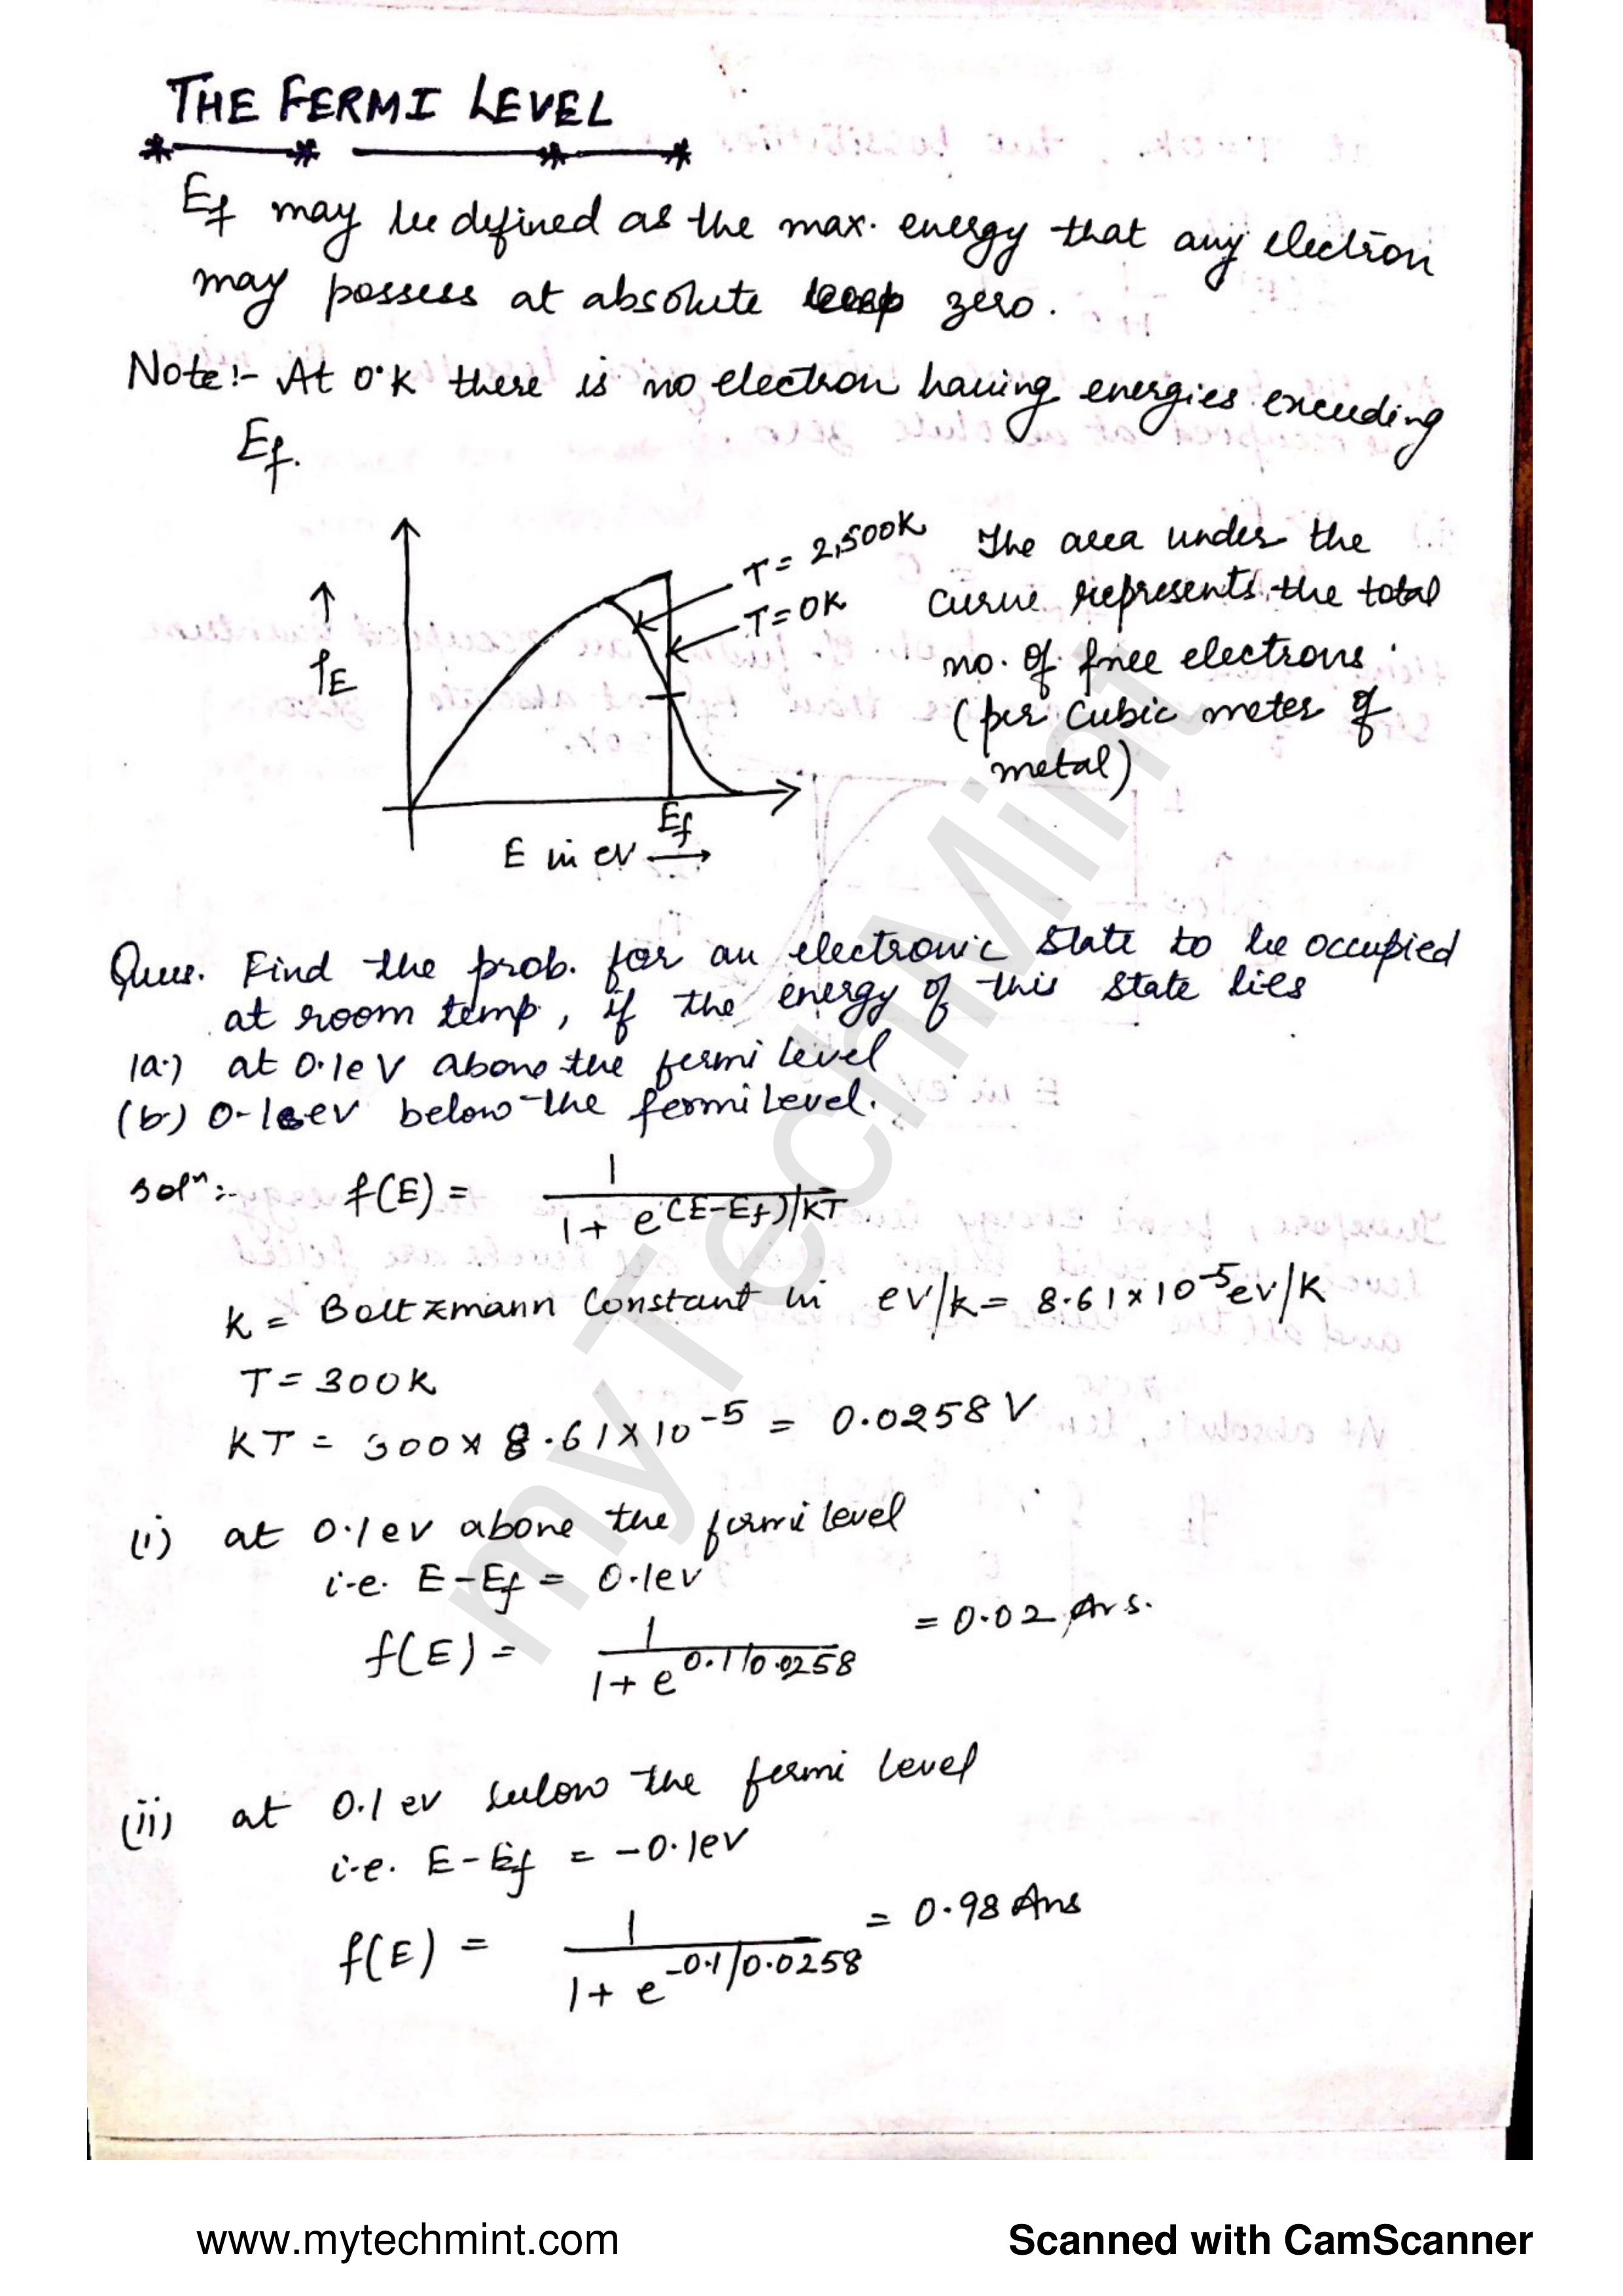 THE FERMI LEVEL
Ef may be defined as the max. energy that any electron
may possess at absolute zero.
Note:- At 0°K there is no electron having energies exceeding
Ef.
T = 2,500K
T = 0K
↑
ρE
The area under the
curve represents the total
no. of free electrons
(per cubic meter of
metal)
Ef
E in ev →
Ques. Find the prob. for an electronic state to be occupied
at room temp, if the energy of this state lies
(a.) at 0.1eV above the fermi level
(b.) 0.1ev below the fermi level.
Solⁿ:- f(E) = 1 / 1 + e^(E-Ef)/KT
K = Boltzmann Constant in ev/k = 8.61 x 10^-5 ev/K
T = 300K
KT = 300 x 8.61 x 10^-5 = 0.0258 V
(i) at 0.1 ev above the fermi level
i.e. E - Ef = 0.1ev
f(E) = 1 / 1 + e^0.1/0.0258 = 0.02 Ans.
(ii) at 0.1 ev below the fermi level
i.e. E - Ef = -0.1ev
f(E) = 1 / 1 + e^-0.1/0.0258 = 0.98 Ans
myTechMint
www.mytechmint.com
Scanned with CamScanner